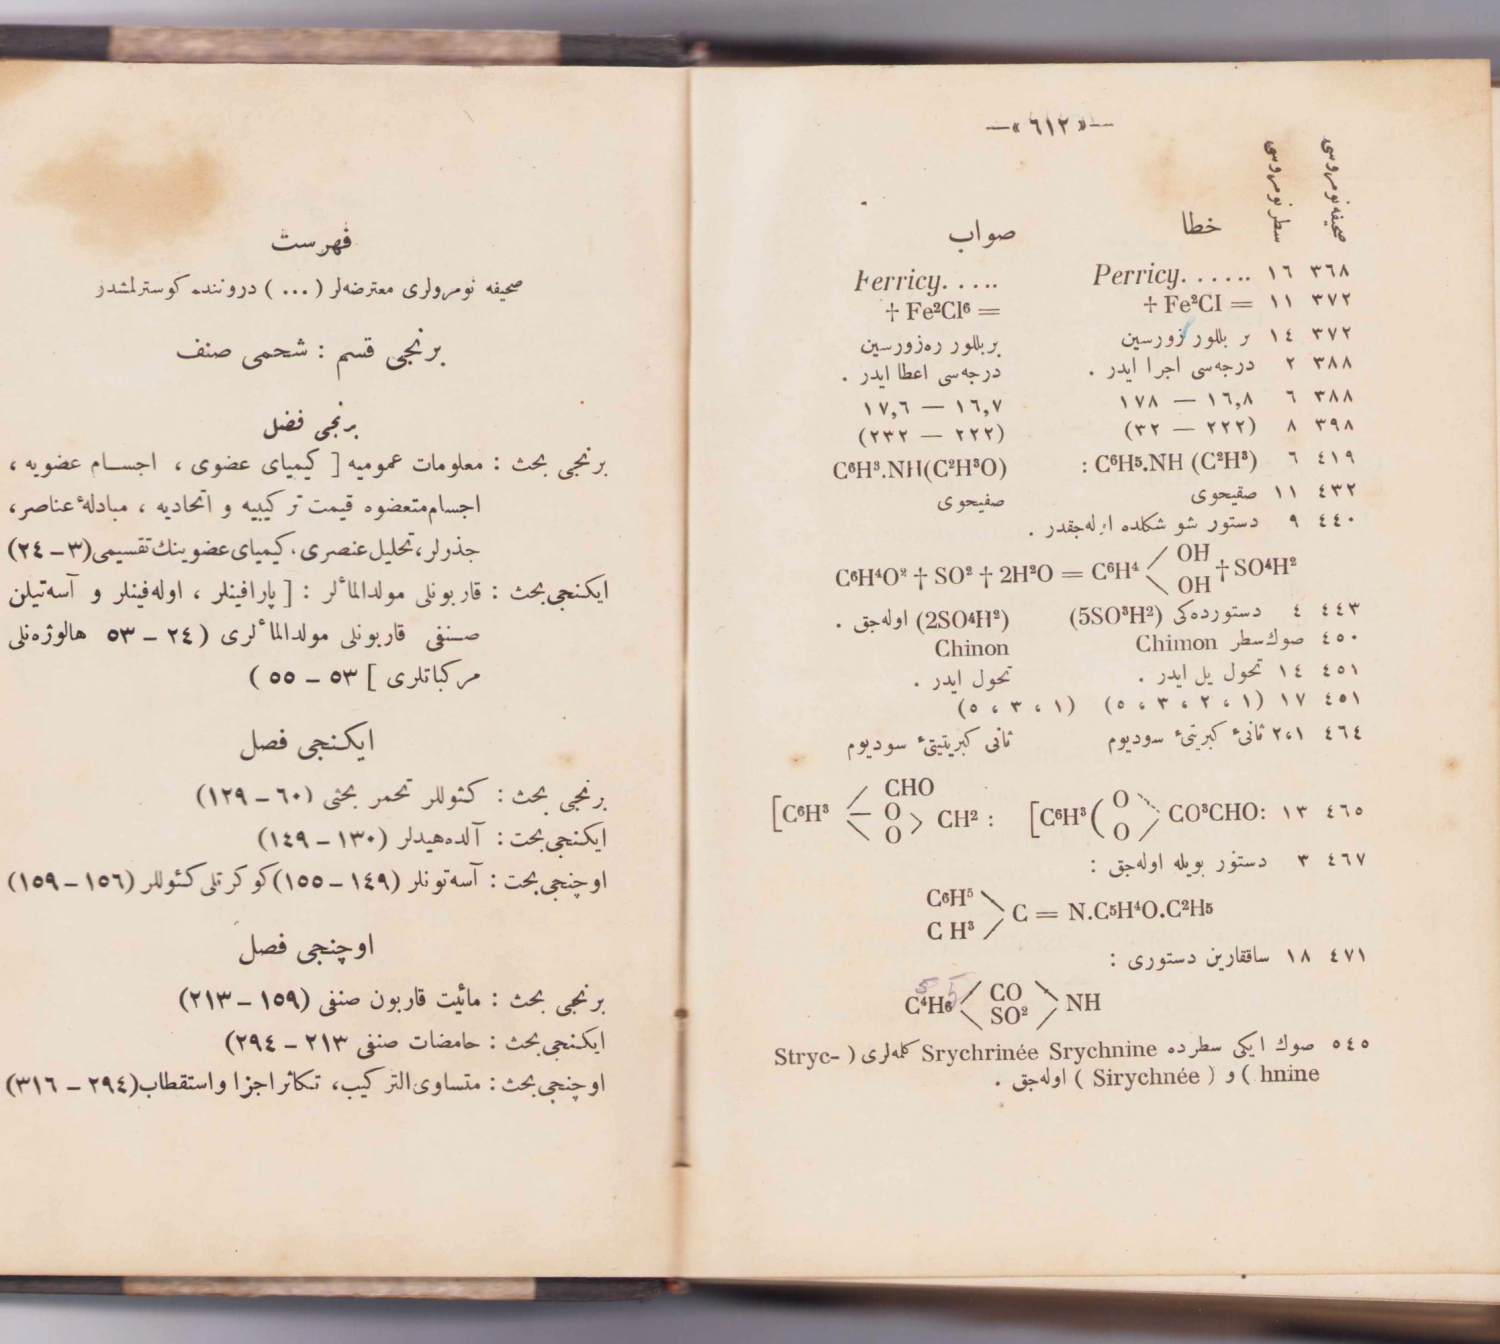 —« ٦١٢ »—
صحیفه نومروسی
سطر نومروسی
خطا
صواب
٣٦٨ ١٦ Perricy. . . . . . Ferricy. . . . .
٣٧٢ ١١ † Fe²CI = † Fe²Cl⁶ =
٣٧٢ ١٤ بر بللور زورسین بربللور ره‌زورسین
٣٨٨ ٢ درجه‌سی اجرا ایدر . درجه‌سی اعطا ایدر .
٣٨٨ ٦ ١٦,٨ — ١٧٨ ١٦,٧ — ١٧,٦
٣٩٨ ٨ (٢٢٢ — ٣٢) (٢٢٢ — ٢٣٢)
٤١٩ ٦ C⁶H⁵.NH (C²H³) : C⁶H³.NH(C²H³O)
٤٣٢ ١١ صقیحوی صفیحوی
٤٤٠ ٩ دستور شو شکلده اوله‌جقدر .
C⁶H⁴O² † SO² † 2H²O = C⁶H⁴ OH OH † SO⁴H²
٤٤٣ ٤ دستورده‌کی (5SO³H²) (2SO⁴H²) اوله‌جق .
٤٥٠ صوك‌سطر Chimon Chinon
٤٥١ ١٤ تحول یل ایدر . تحول ایدر .
٤٥١ ١٧ (١ ، ٢ ، ٣ ، ٥) (١ ، ٣ ، ٥)
٤٦٤ ٢،١ ثانیٔ کبریتیٔ سودیوم ثانی کبریتیتیٔ سودیوم
٤٦٥ ١٣ [C⁶H³ ( O O CO³CHO: [C⁶H³ CHO O O CH² :
٤٦٧ ٣ دستور بویله اوله‌جق :
C⁶H⁵ C H³ C = N.C⁵H⁴O.C²H⁵
٤٧١ ١٨ ساققارین دستوری :
C⁴H⁶ CO SO² NH
5 5
٥٤٥ صوك ایکی سطرده Srychrinée Srychnine کلمه‌لری ( Stryc-
hnine ) و ( Sirychnée ) اوله‌جق .
فهرست
صحیفه نومرولری معترضه‌لر ( . . . ) دروننده کوسترلمشدر
برنجی قسم : شحمی صنف
برنجی فضل
برنجی بحث : معلومات عمومیه [ کیمیای عضوی ، اجسام عضویه ،
اجسام‌متعضوه قیمت ترکیبیه و اتحادیه ، مبادلهٔ عناصر،
جذرلر، تحلیل‌عنصری، کیمیای‌عضوینك‌تقسیمی(٣ – ٢٤)
ایکنجی‌بحث : قاربونلی مولدالمأ لر : [ پارافینلر ، اوله‌فینلر و آسه‌تیلن
صنفی قاربونلی مولدالمأ لری ( ٢٤ – ٥٣ هالوژه‌نلی
مرکباتلری ] ٥٣ – ٥٥ )
ایکنجی فصل
برنجی بحث : کئوللر تحمر بحثی (٦٠ – ١٢٩)
ایکنجی‌بحت : آلده‌هیدلر (١٣٠ – ١٤٩)
اوچنجی‌بحت : آسه‌تونلر (١٤٩ – ١٥٥)کوکرتلی‌کئوللر (١٥٦ – ١٥٩)
اوچنجی فصل
برنجی بحث : مائیت قاربون صنفی (١٥٩ – ٢١٣)
ایکنجی‌بحث : حامضات صنفی ٢١٣ – ٢٩٤)
اوچنجی‌بحث : متساوی‌الترکیب، تکاثراجزا واستقطاب(٢٩٤ – ٣١٦)